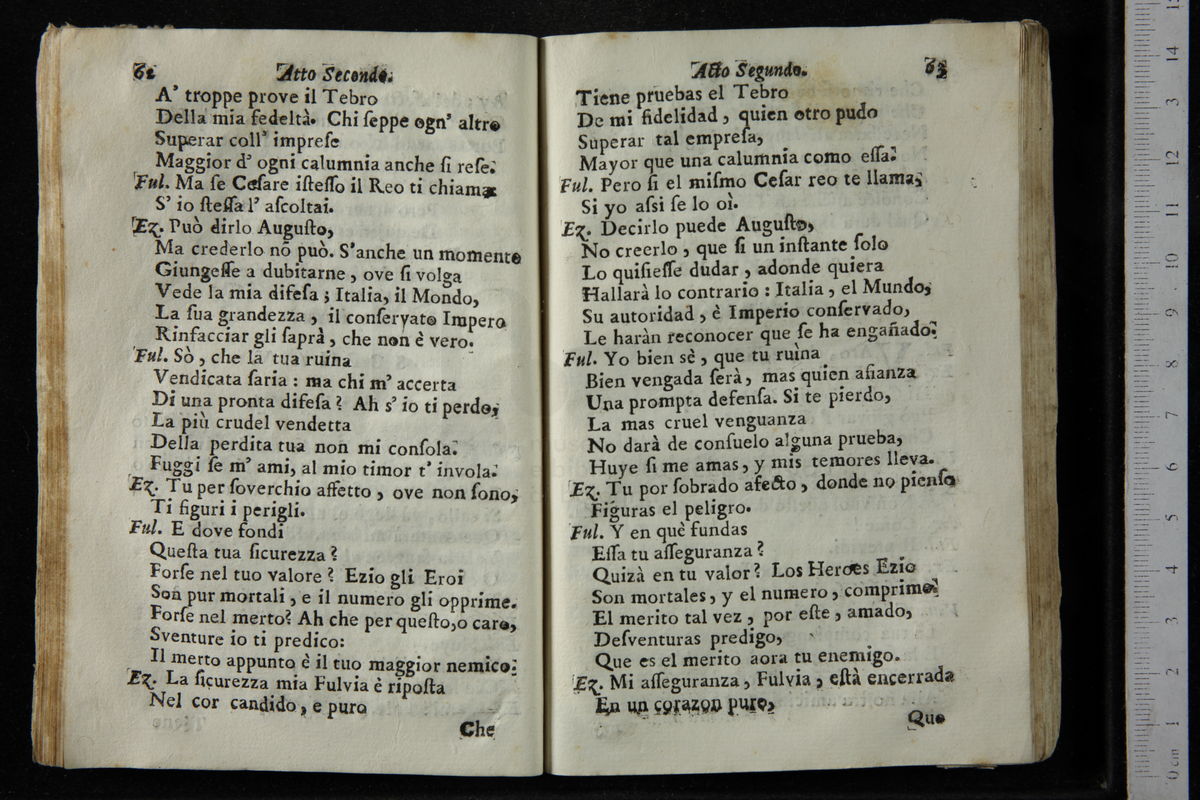 62 Atto Secondo.
A' troppe prove il Tebro
Della mia fedeltà. Chi ſeppe ogn' altro
Superar coll' impreſe
Maggior d' ogni calumnia anche ſi reſe.
Ful. Ma ſe Ceſare iſteſſo il Reo ti chiama
S' io ſteſſa l' aſcoltai.
Ez. Può dirlo Auguſto,
Ma crederlo nõ può. S'anche un momento
Giungeſſe a dubitarne, ove ſi volga
Vede la mia difeſa; Italia, il Mondo,
La ſua grandezza, il conſervato Impero
Rinfacciar gli ſaprà, che non è vero.
Ful. Sò, che la tua ruina
Vendicata ſaria: ma chi m' accerta
Di una pronta difeſa? Ah s' io ti perdo,
La più crudel vendetta
Della perdita tua non mi conſola.
Fuggi ſe m' ami, al mio timor t' invola.
Ez. Tu per ſoverchio affetto, ove non ſono,
Ti figuri i perigli.
Ful. E dove fondi
Queſta tua ſicurezza?
Forſe nel tuo valore? Ezio gli Eroi
Son pur mortali, e il numero gli opprime.
Forſe nel merto? Ah che per queſto, o caro,
Sventure io ti predico:
Il merto appunto è il tuo maggior nemico.
Ez. La ſicurezza mia Fulvia è ripoſta
Nel cor candido, e puro
Che
Acto Segundo. 63
Tiene pruebas el Tebro
De mi fidelidad, quien otro pudo
Superar tal empreſa,
Mayor que una calumnia como eſſa.
Ful. Pero ſi el miſmo Ceſar reo te llama,
Si yo aſsi ſe lo oì.
Ez. Decirlo puede Auguſto,
No creerlo, que ſi un inſtante ſolo
Lo quiſieſſe dudar, adonde quiera
Hallarà lo contrario: Italia, el Mundo,
Su autoridad, è Imperio conſervado,
Le haràn reconocer que ſe ha engañado.
Ful. Yo bien sè, que tu ruìna
Bien vengada ſerà, mas quien afianza
Una prompta defenſa. Si te pierdo,
La mas cruel venguanza
No darà de conſuelo alguna prueba,
Huye ſi me amas, y mis temores lleva.
Ez. Tu por ſobrado afecto, donde no pienſo
Figuras el peligro.
Ful. Y en què fundas
Eſſa tu aſſeguranza?
Quizà en tu valor? Los Heroes Ezio
Son mortales, y el numero, comprime.
El merito tal vez, por eſte, amado,
Deſventuras predigo,
Que es el merito aora tu enemigo.
Ez. Mi aſſeguranza, Fulvia, eſtà encerrada
En un corazon puro,
Que
0 cm 1 2 3 4 5 6 7 8 9 10 11 12 3 14